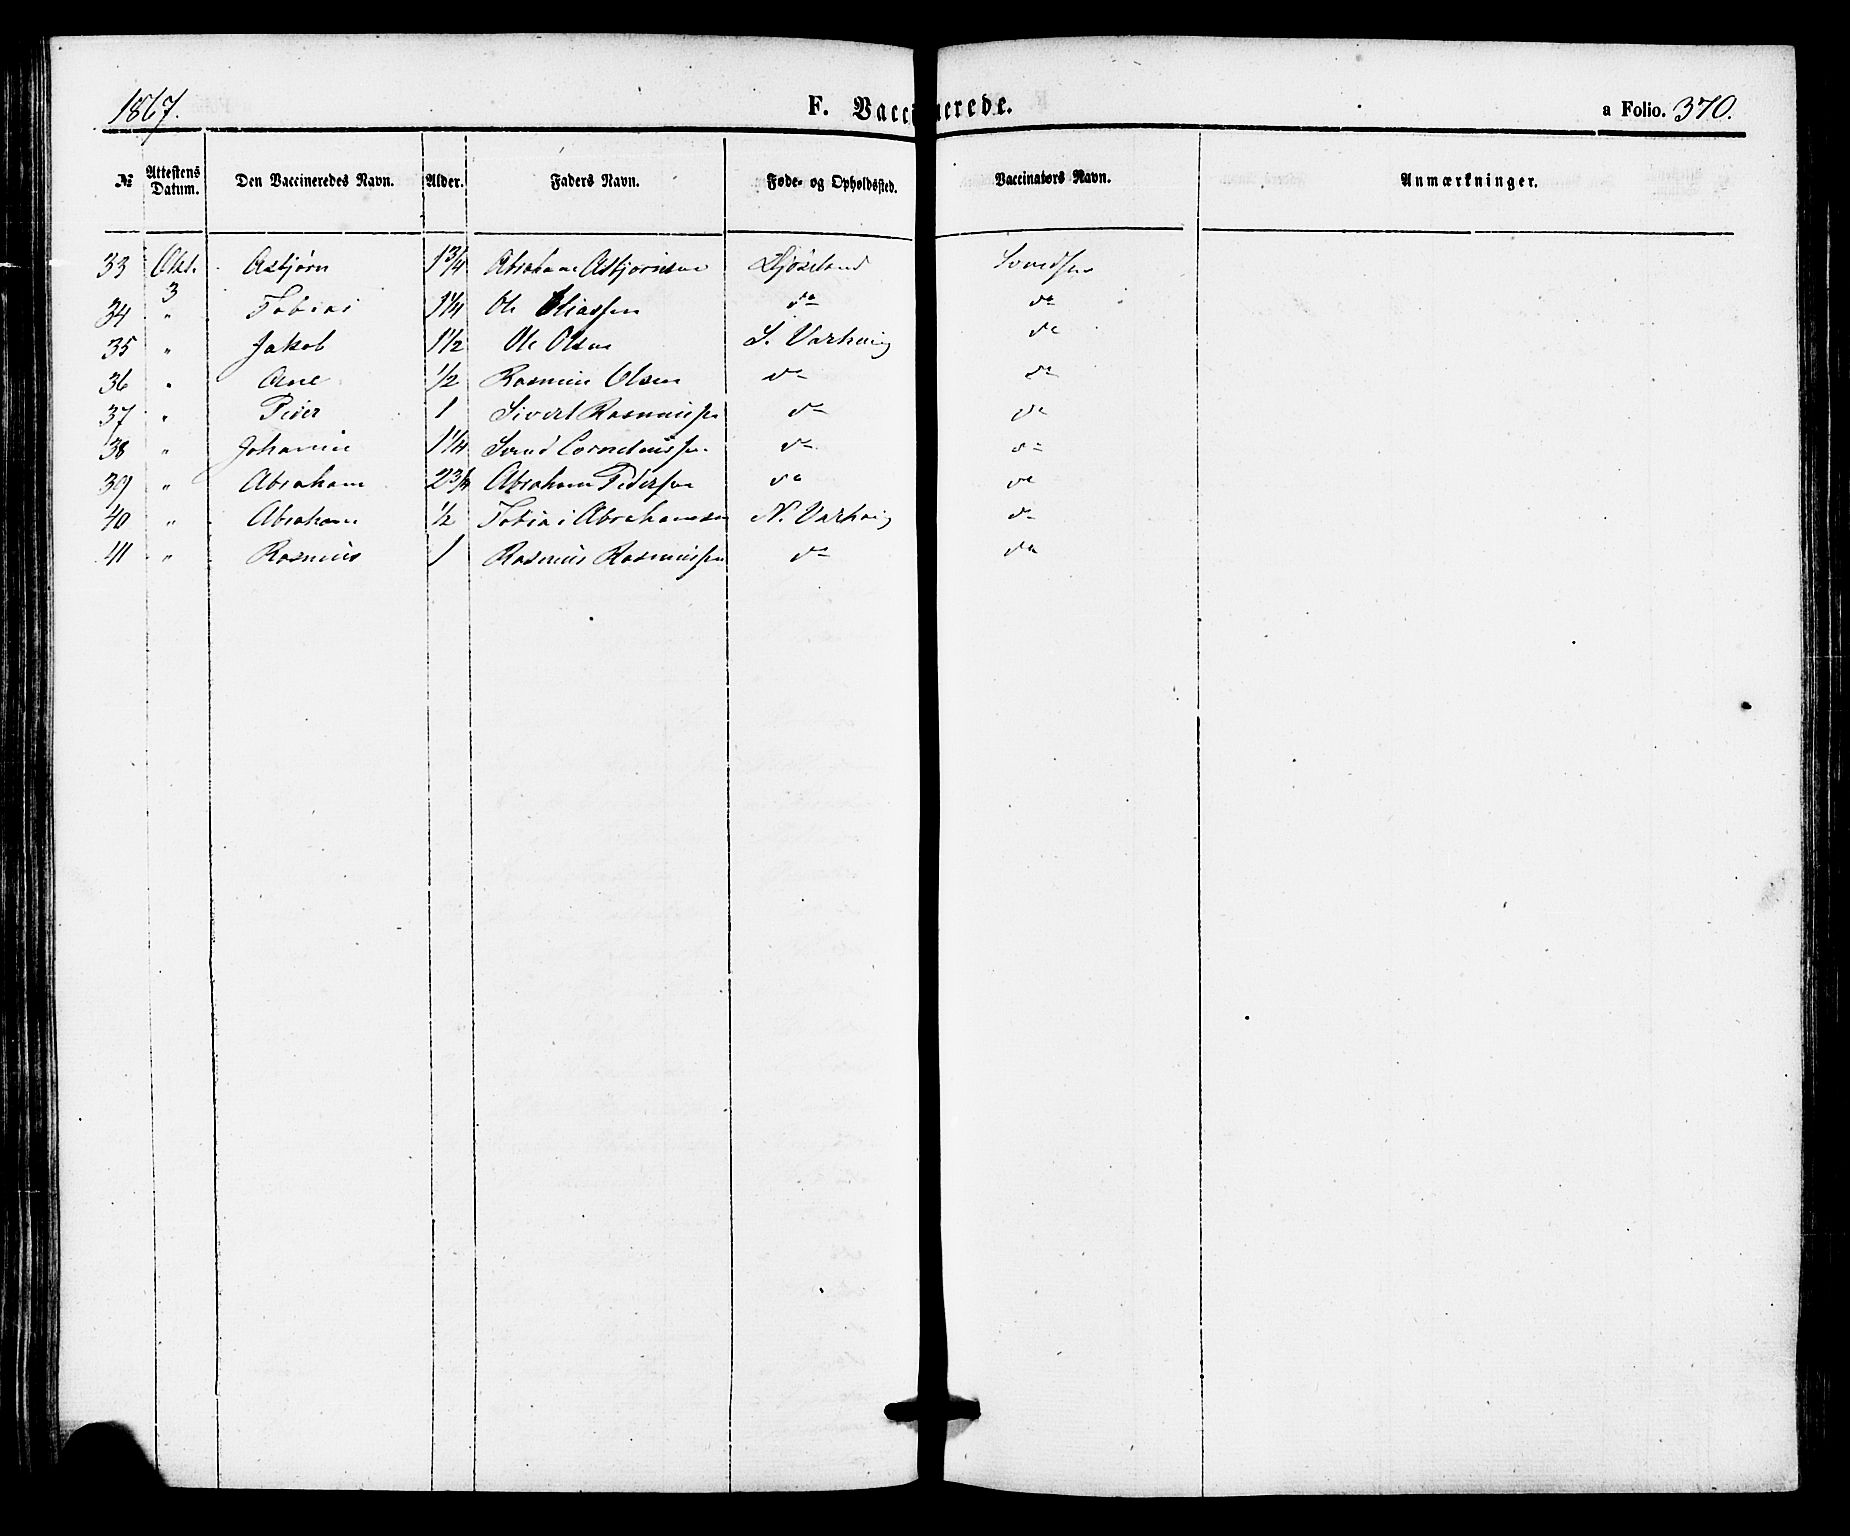 1867. F. Vaccinerede. a Folio. 370.
№ Attestens Datum. Den Vaccineredes Navn. Alder. Faders Navn. Føde- og Opholdssted. Vaccinators Navn. Anmærkninger.
33 Okt. 3 Asbjørn 1 3/4 Abraham Asbjørnsen Ljosland
34 " Tobias 1 1/4 Ole Eliassen do do
35 " Jakob 1 1/2 Ole Olsen S. Varhaug do
36 " Arne 1/2 Rasmus Olsen do do
37 " Peder 1 Sivert Rasmussen do do
38 " Johanne 1 1/4 Svend Corneliussen do do
39 " Abraham 2 3/4 Abraham Pedersen do do
40 " Abraham 1/2 Tobias Abrahamsen N. Varhaug do
41 " Rasmus 1 Rasmus Rasmussen do do